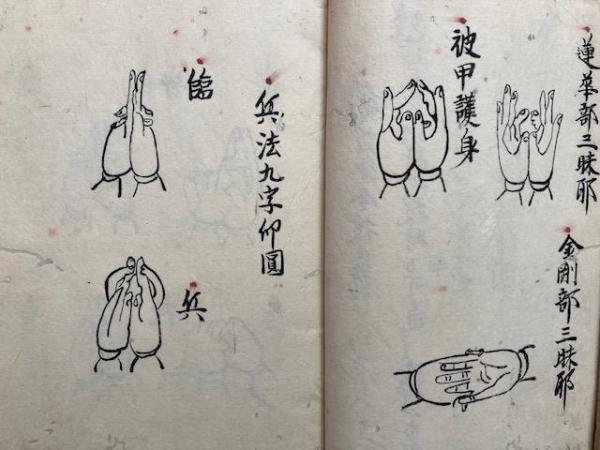 蓮華部三昧耶
金剛部三昧耶
被甲護身
兵法九字仰圓
臨
兵